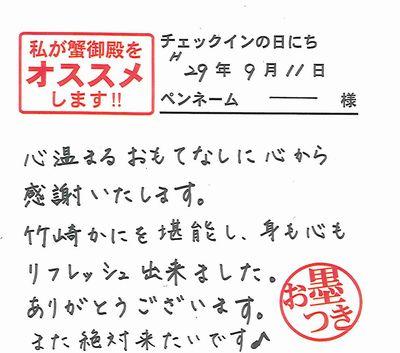 私が蟹御殿を
オススメ
します!!
チェックインの日にち
H29年9月11日
ペンネーム ─── 様
心温まるおもてなしに心から
感謝いたします。
竹崎かにを堪能し、身も心も
リフレッシュ出来ました。
ありがとうございます。
また絶対来たいです♪
お墨つき